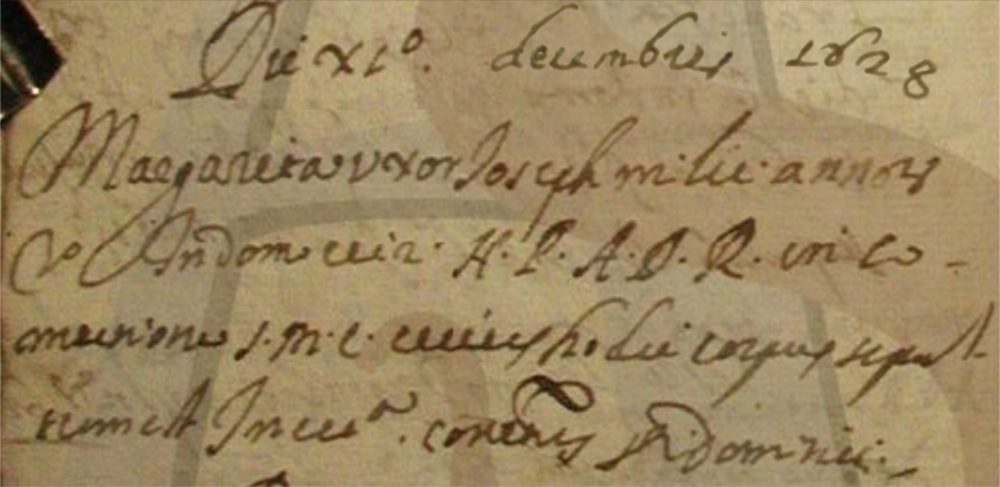 Die xi°. decembris 1628
Margareta uxor Joseph milic annors
In domo H. P. A. D. R. in co-
munione S. M. E. cuius hodie corpus sepul-
tum est In ecc.ª conentus S. domnici.